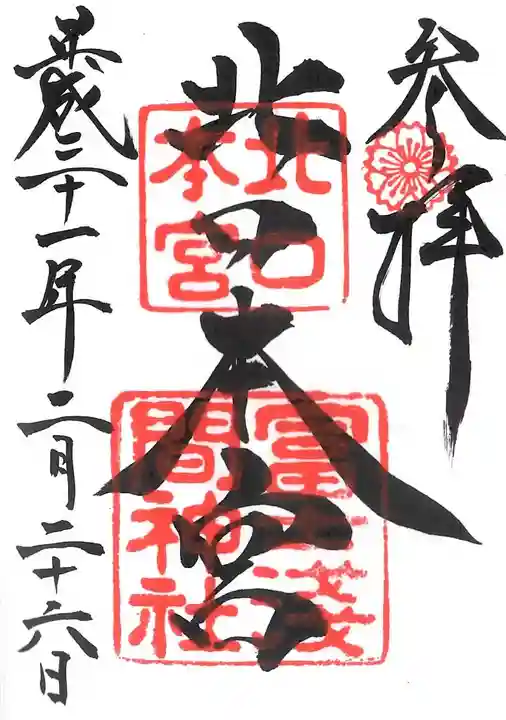 参拝
北口本宮
北口
本宮
冨士浅
間神社
平成三十一年二月二十六日